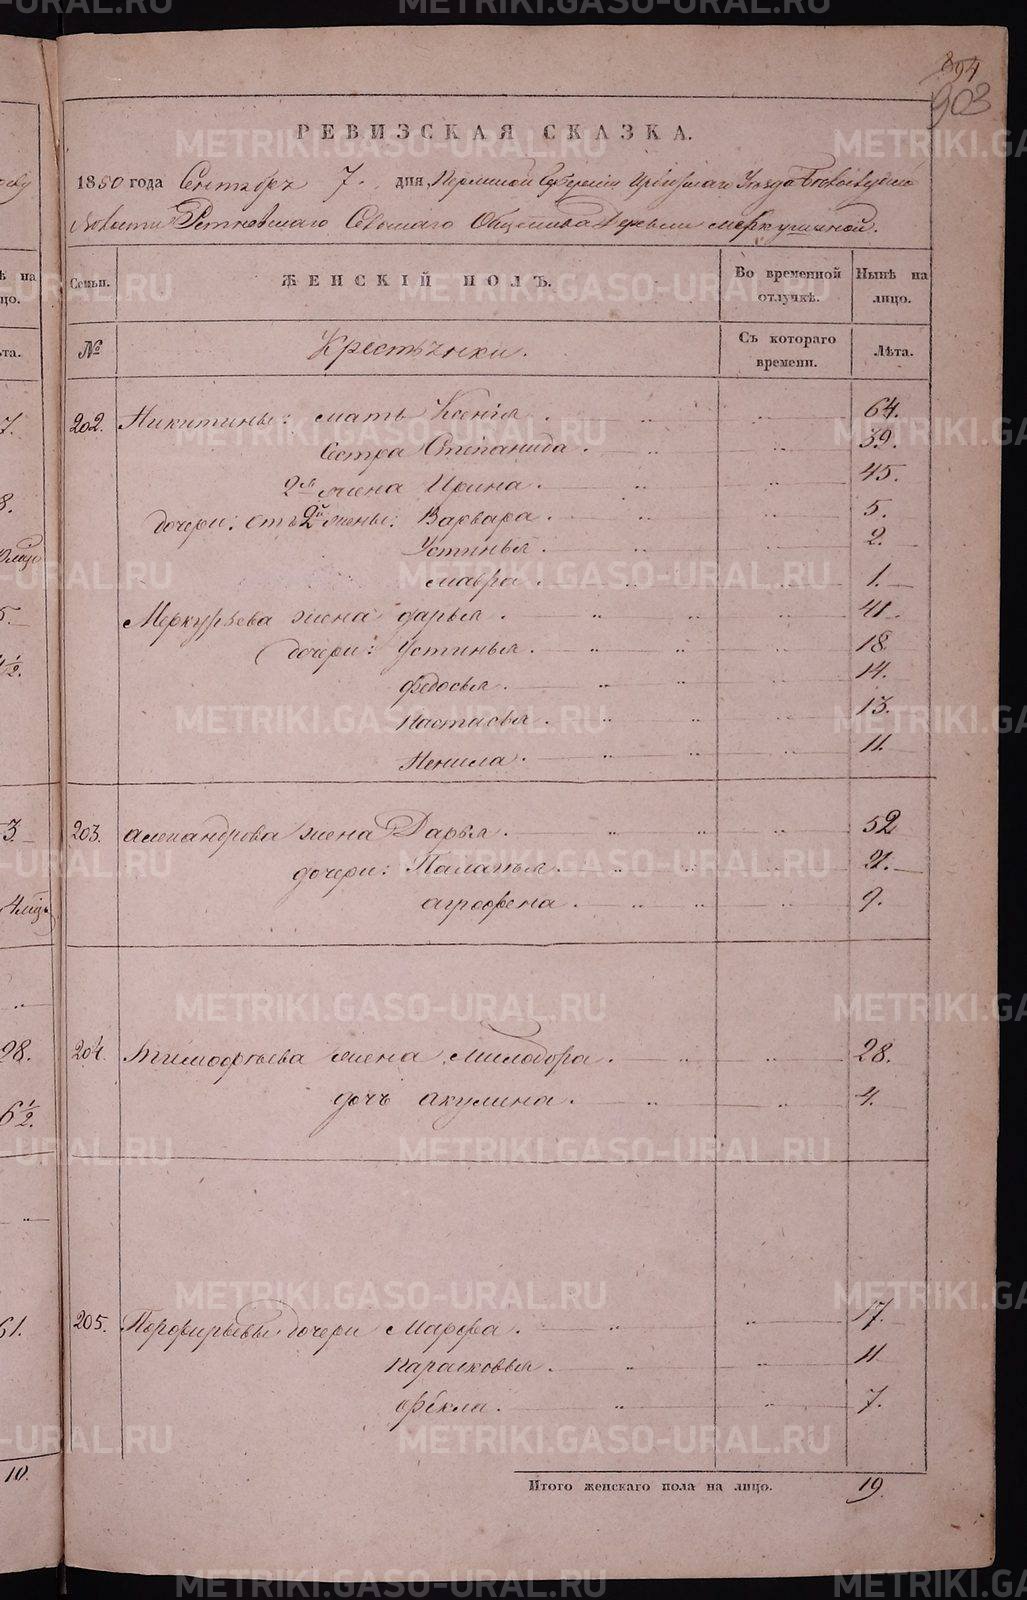 894
903
РЕВИЗСКАЯ СКАЗКА.
1850 года Сентября 7. дня Пермской Губернии Ирбитскаго Уезда
Волости Ретневскаго Сельскаго Общества Деревни Меркушиной.
Семьи. ЖЕНСКІЙ ПОЛЪ. Во временной отлучкѣ. Нынѣ на лицо.
№ Крестьянки. Съ котораго времени. Лѣта.
202. Никитины: мать Ксенія. 64.
Сестра Степанида. 39.
2я жена Ирина. 45.
дочери: отъ 2й жены: Варвара. 5.
Устинья. 2.
Мавра. 1.
Меркурьева жена Дарья. 41
дочери: Устинья. 18
Федосья. 14.
Настасья. 13.
Ненила. 11.
203. Александрова жена Дарья. 52
дочери: Палагья. 21.
Агрофена. 9.
204. Тимофеева жена Милодора. 28.
дочь Акулина. 4.
205. Порфирьевы дочери Марфа. 17.
Парасковья. 11
Фекла. 7.
Итого женскаго пола на лицо. 19.
METRIKI.GASO-URAL.RU